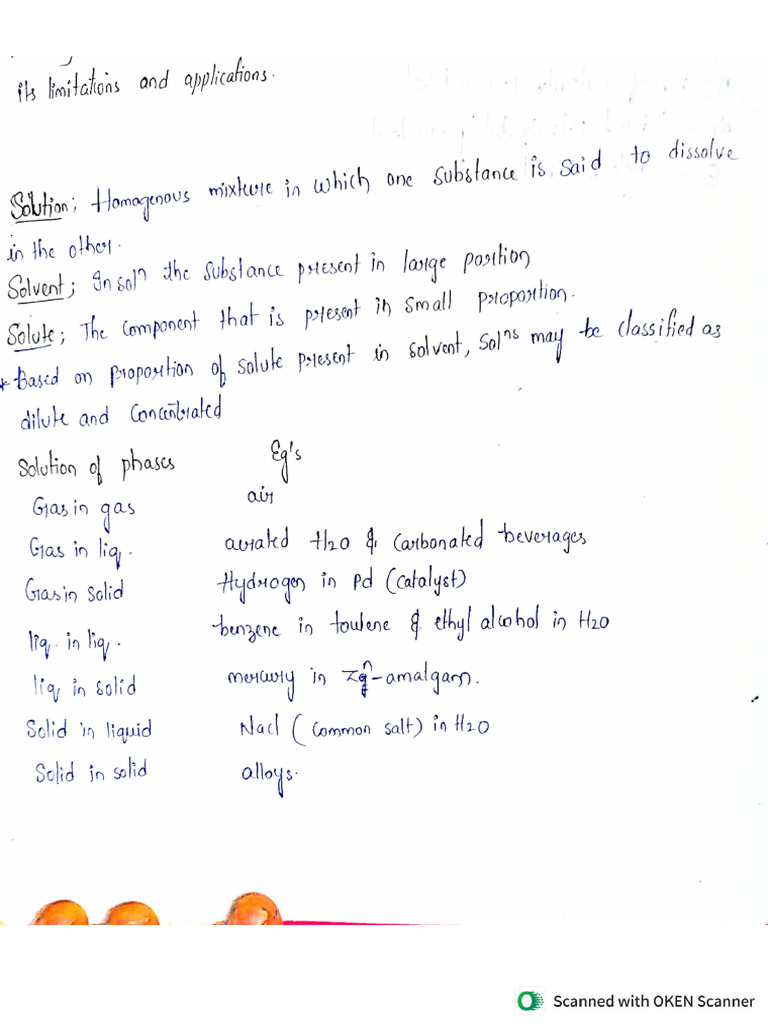 its limitations and applications.
Solution; Homogenous mixture in which one substance is said to dissolve
in the other.
Solvent; In solⁿ the substance present in large portion
Solute; The component that is present in small proportion.
* Based on proportion of solute present in solvent, Solⁿˢ may be classified as
dilute and concentrated
Solution of phases Eg's
Gas in gas air
Gas in liq. aerated H2O & Carbonated beverages
Gas in Solid Hydrogen in Pd (catalyst)
liq. in liq. benzene in toulene & ethyl alcohol in H2O
liq in solid mercury in Zn-amalgam.
Solid in liquid Nacl (common salt) in H2O
Solid in solid alloys.
Scanned with OKEN Scanner